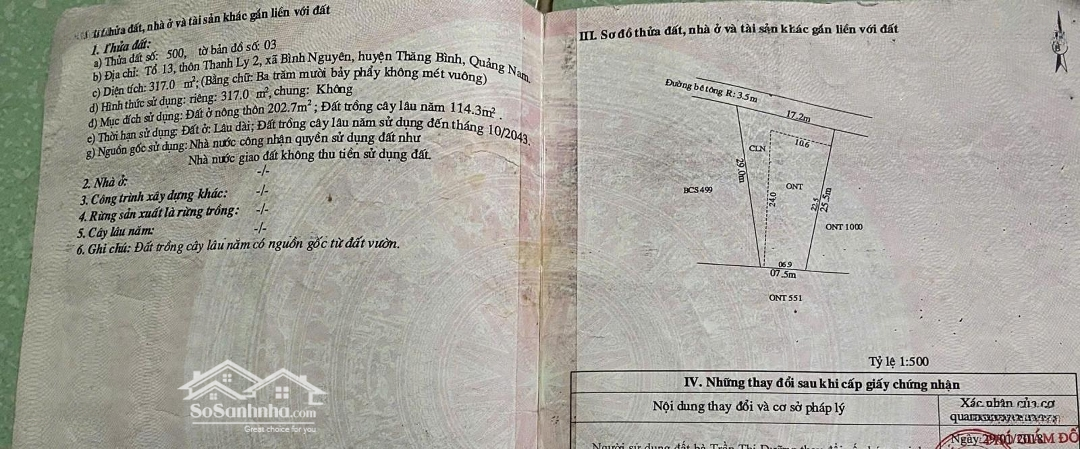 thửa đất, nhà ở và tài sản khác gắn liền với đất
1. Thửa đất:
a) Thửa đất số: 500, tờ bản đồ số: 03
b) Địa chỉ: Tổ 13, thôn Thanh Ly 2, xã Bình Nguyên, huyện Thăng Bình, Quảng Nam.
c) Diện tích: 317.0 m²; (Bằng chữ: Ba trăm mười bảy phẩy không mét vuông)
d) Hình thức sử dụng: riêng: 317.0 m², chung: Không
đ) Mục đích sử dụng: Đất ở nông thôn 202.7m²; Đất trồng cây lâu năm 114.3m².
e) Thời hạn sử dụng: Đất ở: Lâu dài; Đất trồng cây lâu năm sử dụng đến tháng 10/2043.
g) Nguồn gốc sử dụng: Nhà nước công nhận quyền sử dụng đất như
Nhà nước giao đất không thu tiền sử dụng đất.
2. Nhà ở: -/-
3. Công trình xây dựng khác: -/-
4. Rừng sản xuất là rừng trồng: -/-
5. Cây lâu năm: -/-
6. Ghi chú: Đất trồng cây lâu năm có nguồn gốc từ đất vườn.
SoSanhnha.com
Great choice for you
III. Sơ đồ thửa đất, nhà ở và tài sản khác gắn liền với đất
Đường bê tông R: 3.5m
17.2m
10.6
CLN
29.0m
BCS 499
ONT
24.0
22.5
25.5m
ONT 1000
06.9
07.5m
ONT 551
Tỷ lệ 1:500
IV. Những thay đổi sau khi cấp giấy chứng nhận
Nội dung thay đổi và cơ sở pháp lý
Xác nhận của cơ
quan
Ngày 29/01/2018
GIÁM ĐỐ
Người sử dụng đất bà Trần Thị Dưỡng thay đổi